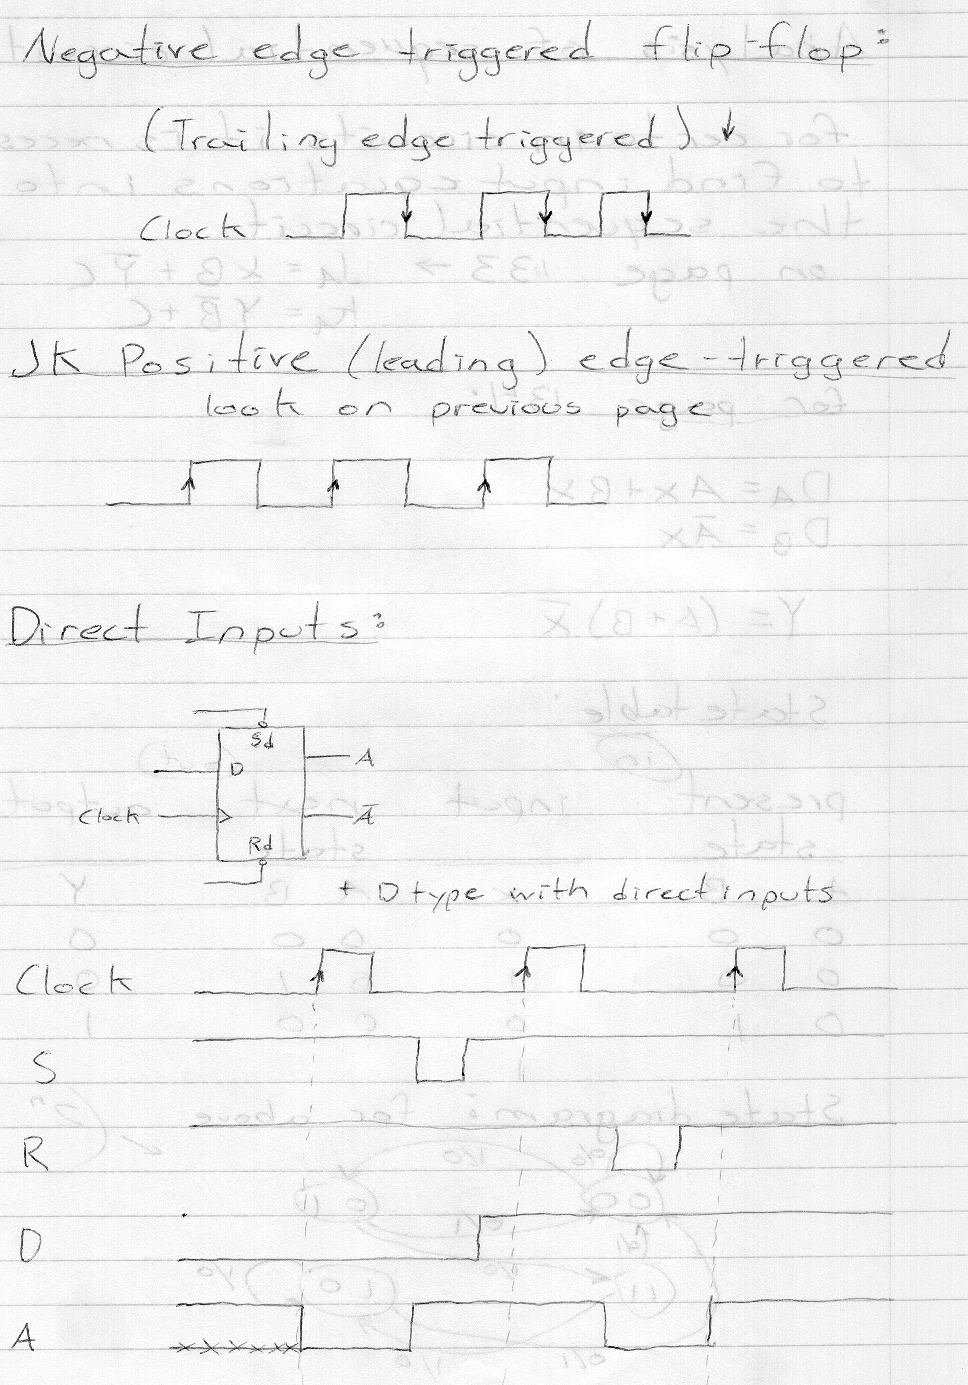 Negative edge triggered flip-flop:
(Trailing edge triggered) ↓
Clock
JK Positive (leading) edge-triggered
look on previous page
Direct Inputs:
Sd
D
A
Clock
Ā
Rd
+ D type with direct inputs
Clock
S
R
D
A
xxxxxx